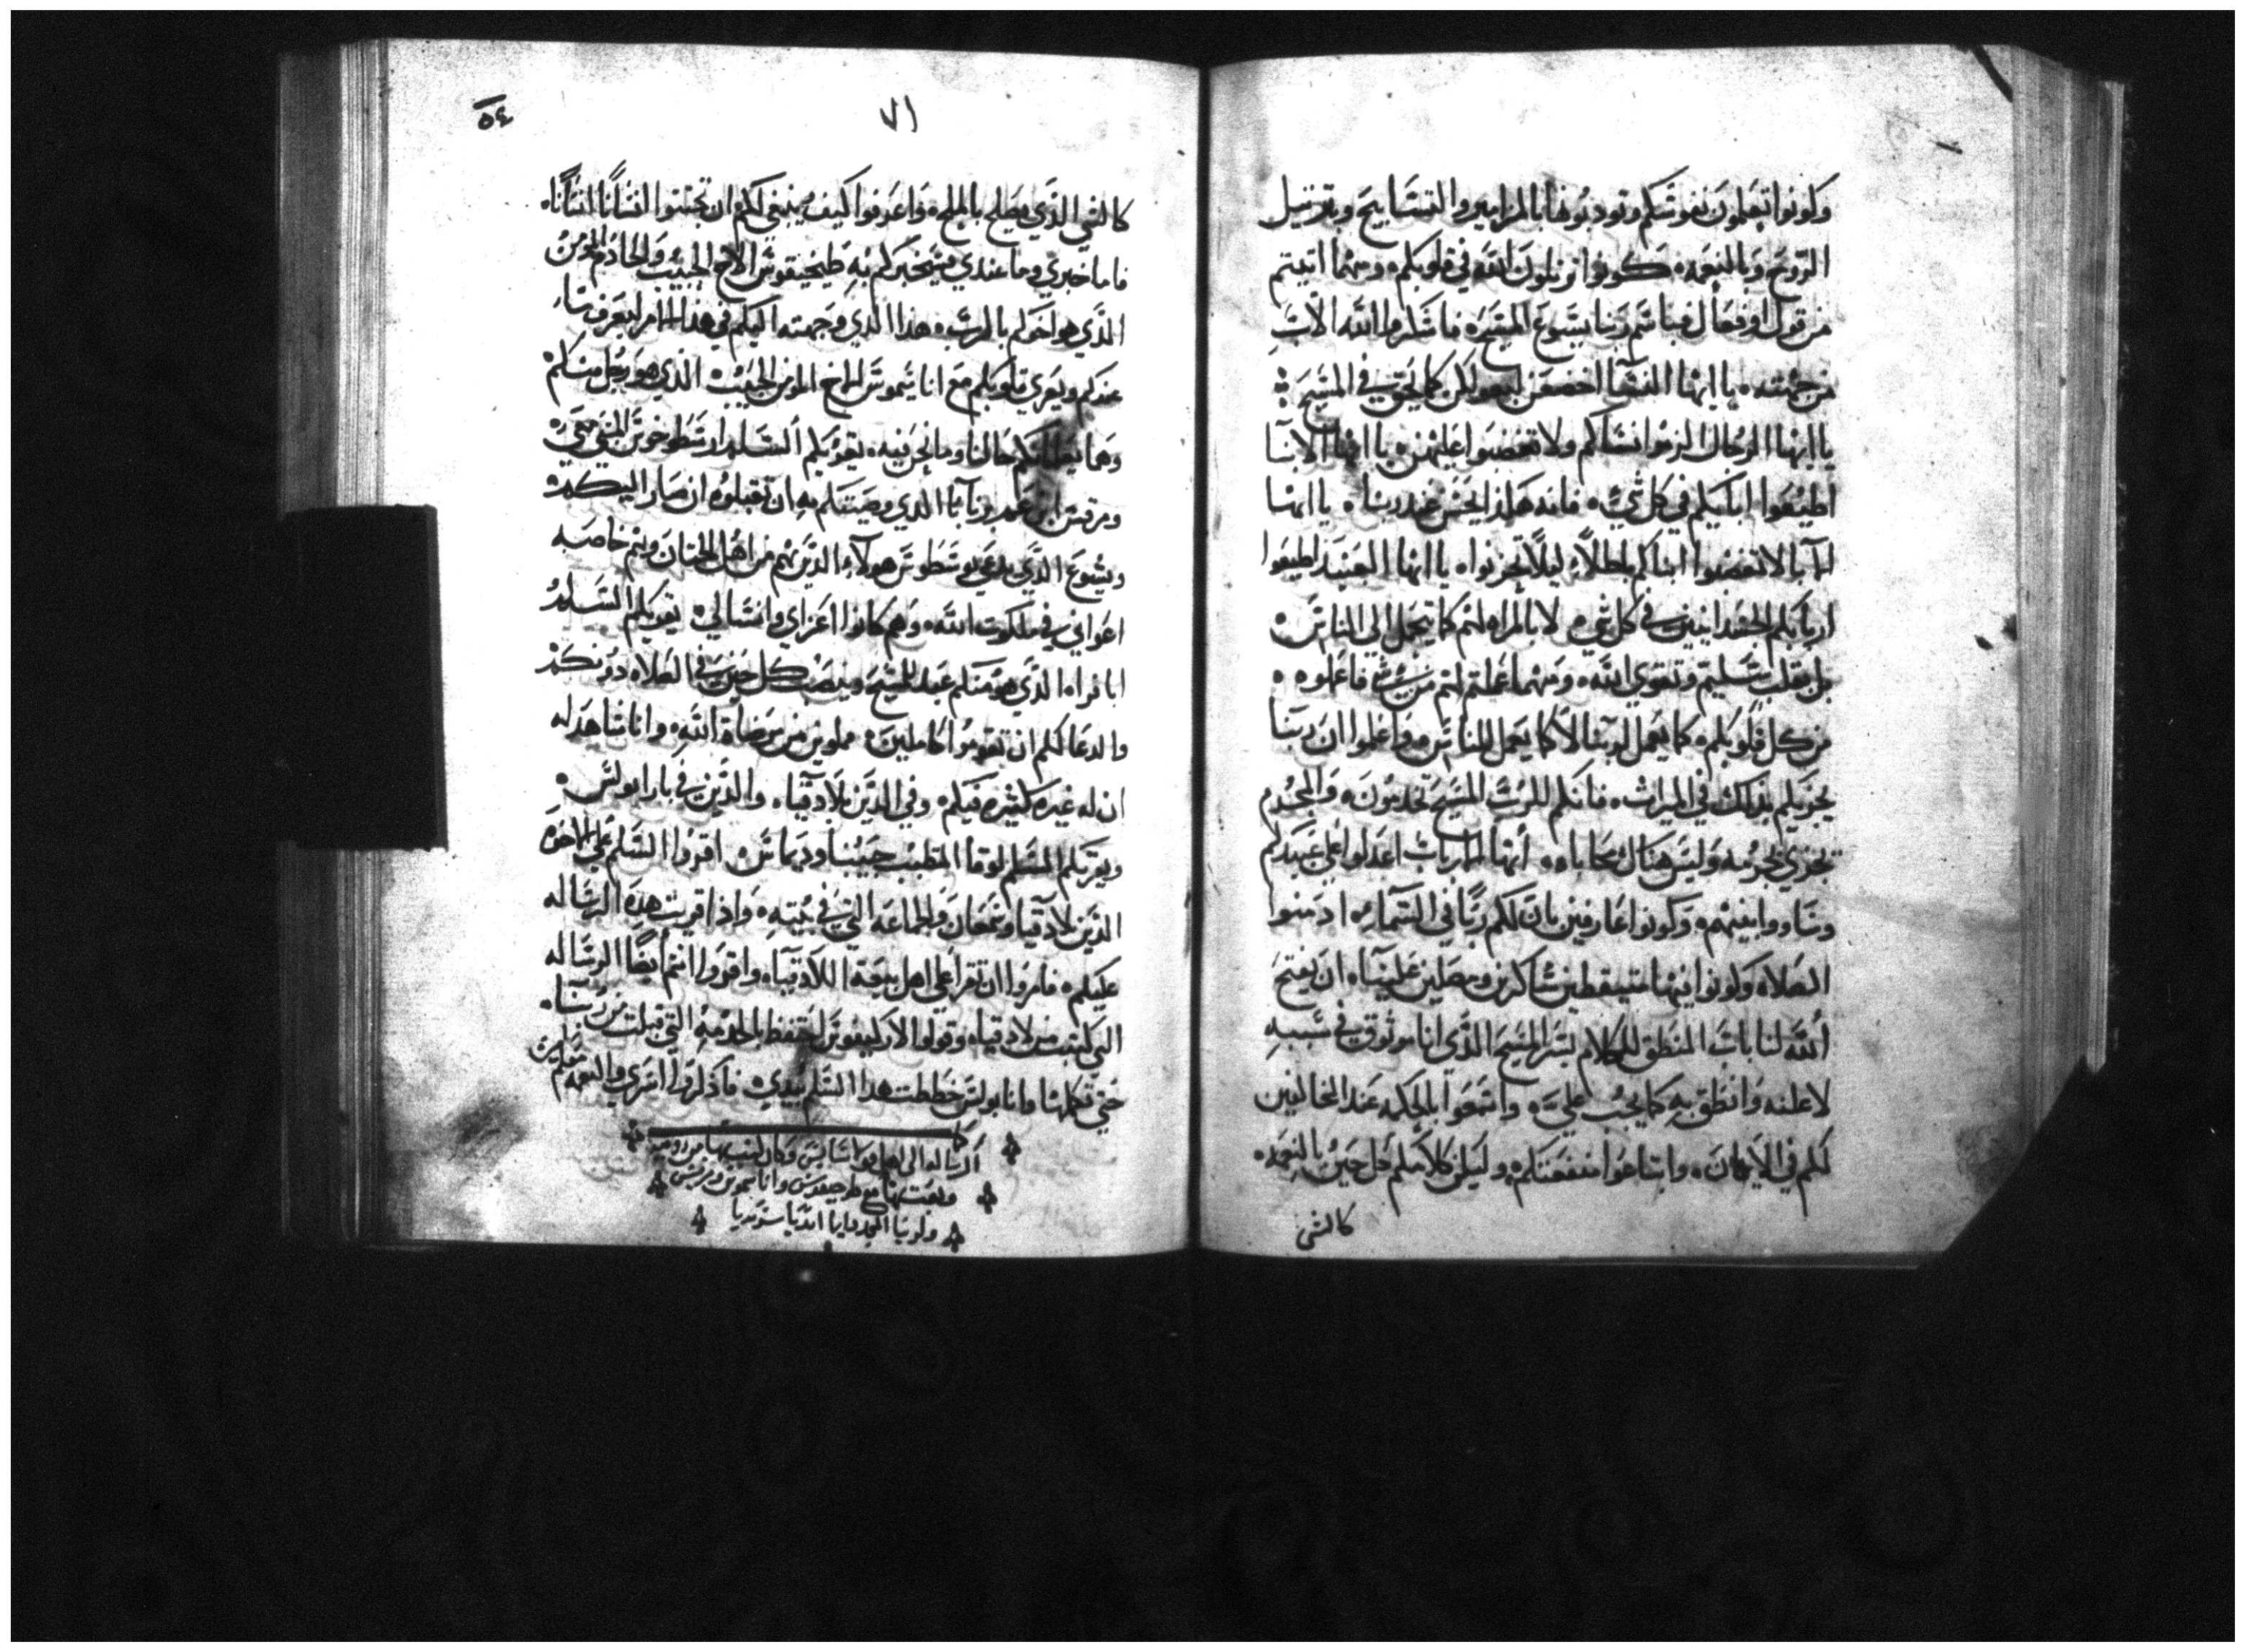 وكونوا تعلمون نفوسكم وتودبونها بالمزامير والتسابيح وبترتيل
الروح وبالنعمه كونوا ترتلون لله في قلوبكم ومهما اتيتم
من قول او فعال فباسم ربنا يسوع المسيح فاشكروا الله الاب
من جهته يا ايها النسا اخضعن لبعولكن كما يحق في المسيح
يا ايها الرجال الزموا نساكم ولا تغضبوا عليهن يا ايها الابنا
اطيعوا اباكم في كل شي فانه هكذا يحسن عند ربنا يا ايها
الابا لا تغضبوا ابناكم باطلا ليلا يحزنوا يا ايها العبيد اطيعوا
اربابكم الجسدانيين في كل شي لا بالمراه لهم كما يجمل الي الناس
بل بقلب سليم وتقوي الله ومهما عملتم لهم من شي فاعملوه
من كل قلوبكم كما يعمل لربنا لا كما يعمل للناس واعلموا ان ربنا
يجزيكم بذلك في الميراث فانكم للرب المسيح تخدمون والمجرم
يجزي بجرمه وليس هناك محاباه ايها الارباب اعدلوا علي عبيدكم
وساووا بينهم وكونوا عارفين بان لكم ربا في السماء ادمنوا
الصلاه وكونوا فيها متيقظين شاكرين ومصلين علينا ان يفتح
الله لنا باب المنطق للكلام بسر المسيح الذي انا موثوق في سببه
لاعلنه وانطق به كما يجب علي واسعوا بالحكمه عند المخالفين
لكم في الايمان وابتاعوا منفعتكم وليكن كلامكم كل حين بالنعمه
كالشي
٧١
٥٤
كالشي الذي يصلح بالملح واعرفوا كيف ينبغي لكم ان تجيبوا انسانا انسانا
فاما خبري وما عندي فسيخبركم به طيخيقوس الاخ الحبيب والخادم المومن
الذي هو اخوكم بالرب هذا الذي وجهته اليكم في هذا الامر ليعرف ما
عندكم ويعزي قلوبكم مع اناسيموس الاخ المومن الحبيب الذي هو رجل منكم
وهما يعلمانكم حالنا وما نحن فيه يقريكم السلام ارسطرخوس المسبي معي
ومرقس ابن عم برنابا الذي وصيتكم به ان تقبلوه ان صار اليكم
ويشوع الذي يدعي يوسطوس هولاء الذين هم من اهل الختان وهم خاصه
اعواني في ملكوت الله وهم كانوا اعزاي وانسالي يقريكم السلام
ابافراه الذي هو منكم عبد للمسيح وينصب كل حين في الصلاه دونكم
والدعا لكم ان تقوموا كاملين مملوين من مرضاة الله وانا شاهد له
ان له غيره كثيره فيكم وفي الذين بلادقيا والذين في يارابولس
ويقريكم السلم لوقا المتطبب حبيبنا وديماس اقروا السلم علي الاخوه
الذين بلادقيا ونمفان والجماعه التي في بيته واذا قريت هذه الرساله
عليكم فامروا ان تقرا علي اهل بيعة اللادقيا واقروا انتم ايضا الرساله
التي كتبت من لادقيا وقولوا لاركيفوس احتفظ بالخدمه التي قبلت من ربنا
حتي تكملها وانا بولس خططت هدا السلم بيدي فاذكروا اسري والنعمه معكم امين
الرساله الى اهل قولاسايس وكان كتب بها من روميه
وبعث بها مع طرحيقوس وانا سموس ومرقس
ولربنا المجد دايما ابديا سرمديا